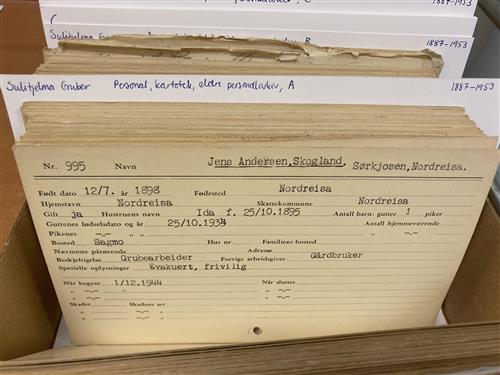 Sulitjelma Gruber
B
1887-1953
Sulitjelma Gruber Personal, kartotek, eldre personalarkiv, A 1887-1953
Nr. 995 Navn Jens Andersen, Skogland, Sørkjosen, Nordreisa.
Født dato 12/7. år 1898 Fødested Nordreisa
Hjemstavn Nordreisa Skattekommune Nordreisa
Gift ja Hustruens navn Ida f. 25/10.1895 Antall barn: gutter 1 piker
Guttenes fødselsdato og år 25/10.1934 Antall hjemmeværende
Pikenes —»— —»—
Bosted Sagmo Hus nr. Familiens bosted
Nærmeste pårørende Adresse
Beskjeftigelse Grubearbeider Forrige arbeidsgiver Gårdbruker
Spesielle oplysninger Evakuert, frivilig
Når begynt 1/12.1944 Når sluttet
» —»— » —»—
» —»— » —»—
Skadet Skadens art
» —»—
» —»—